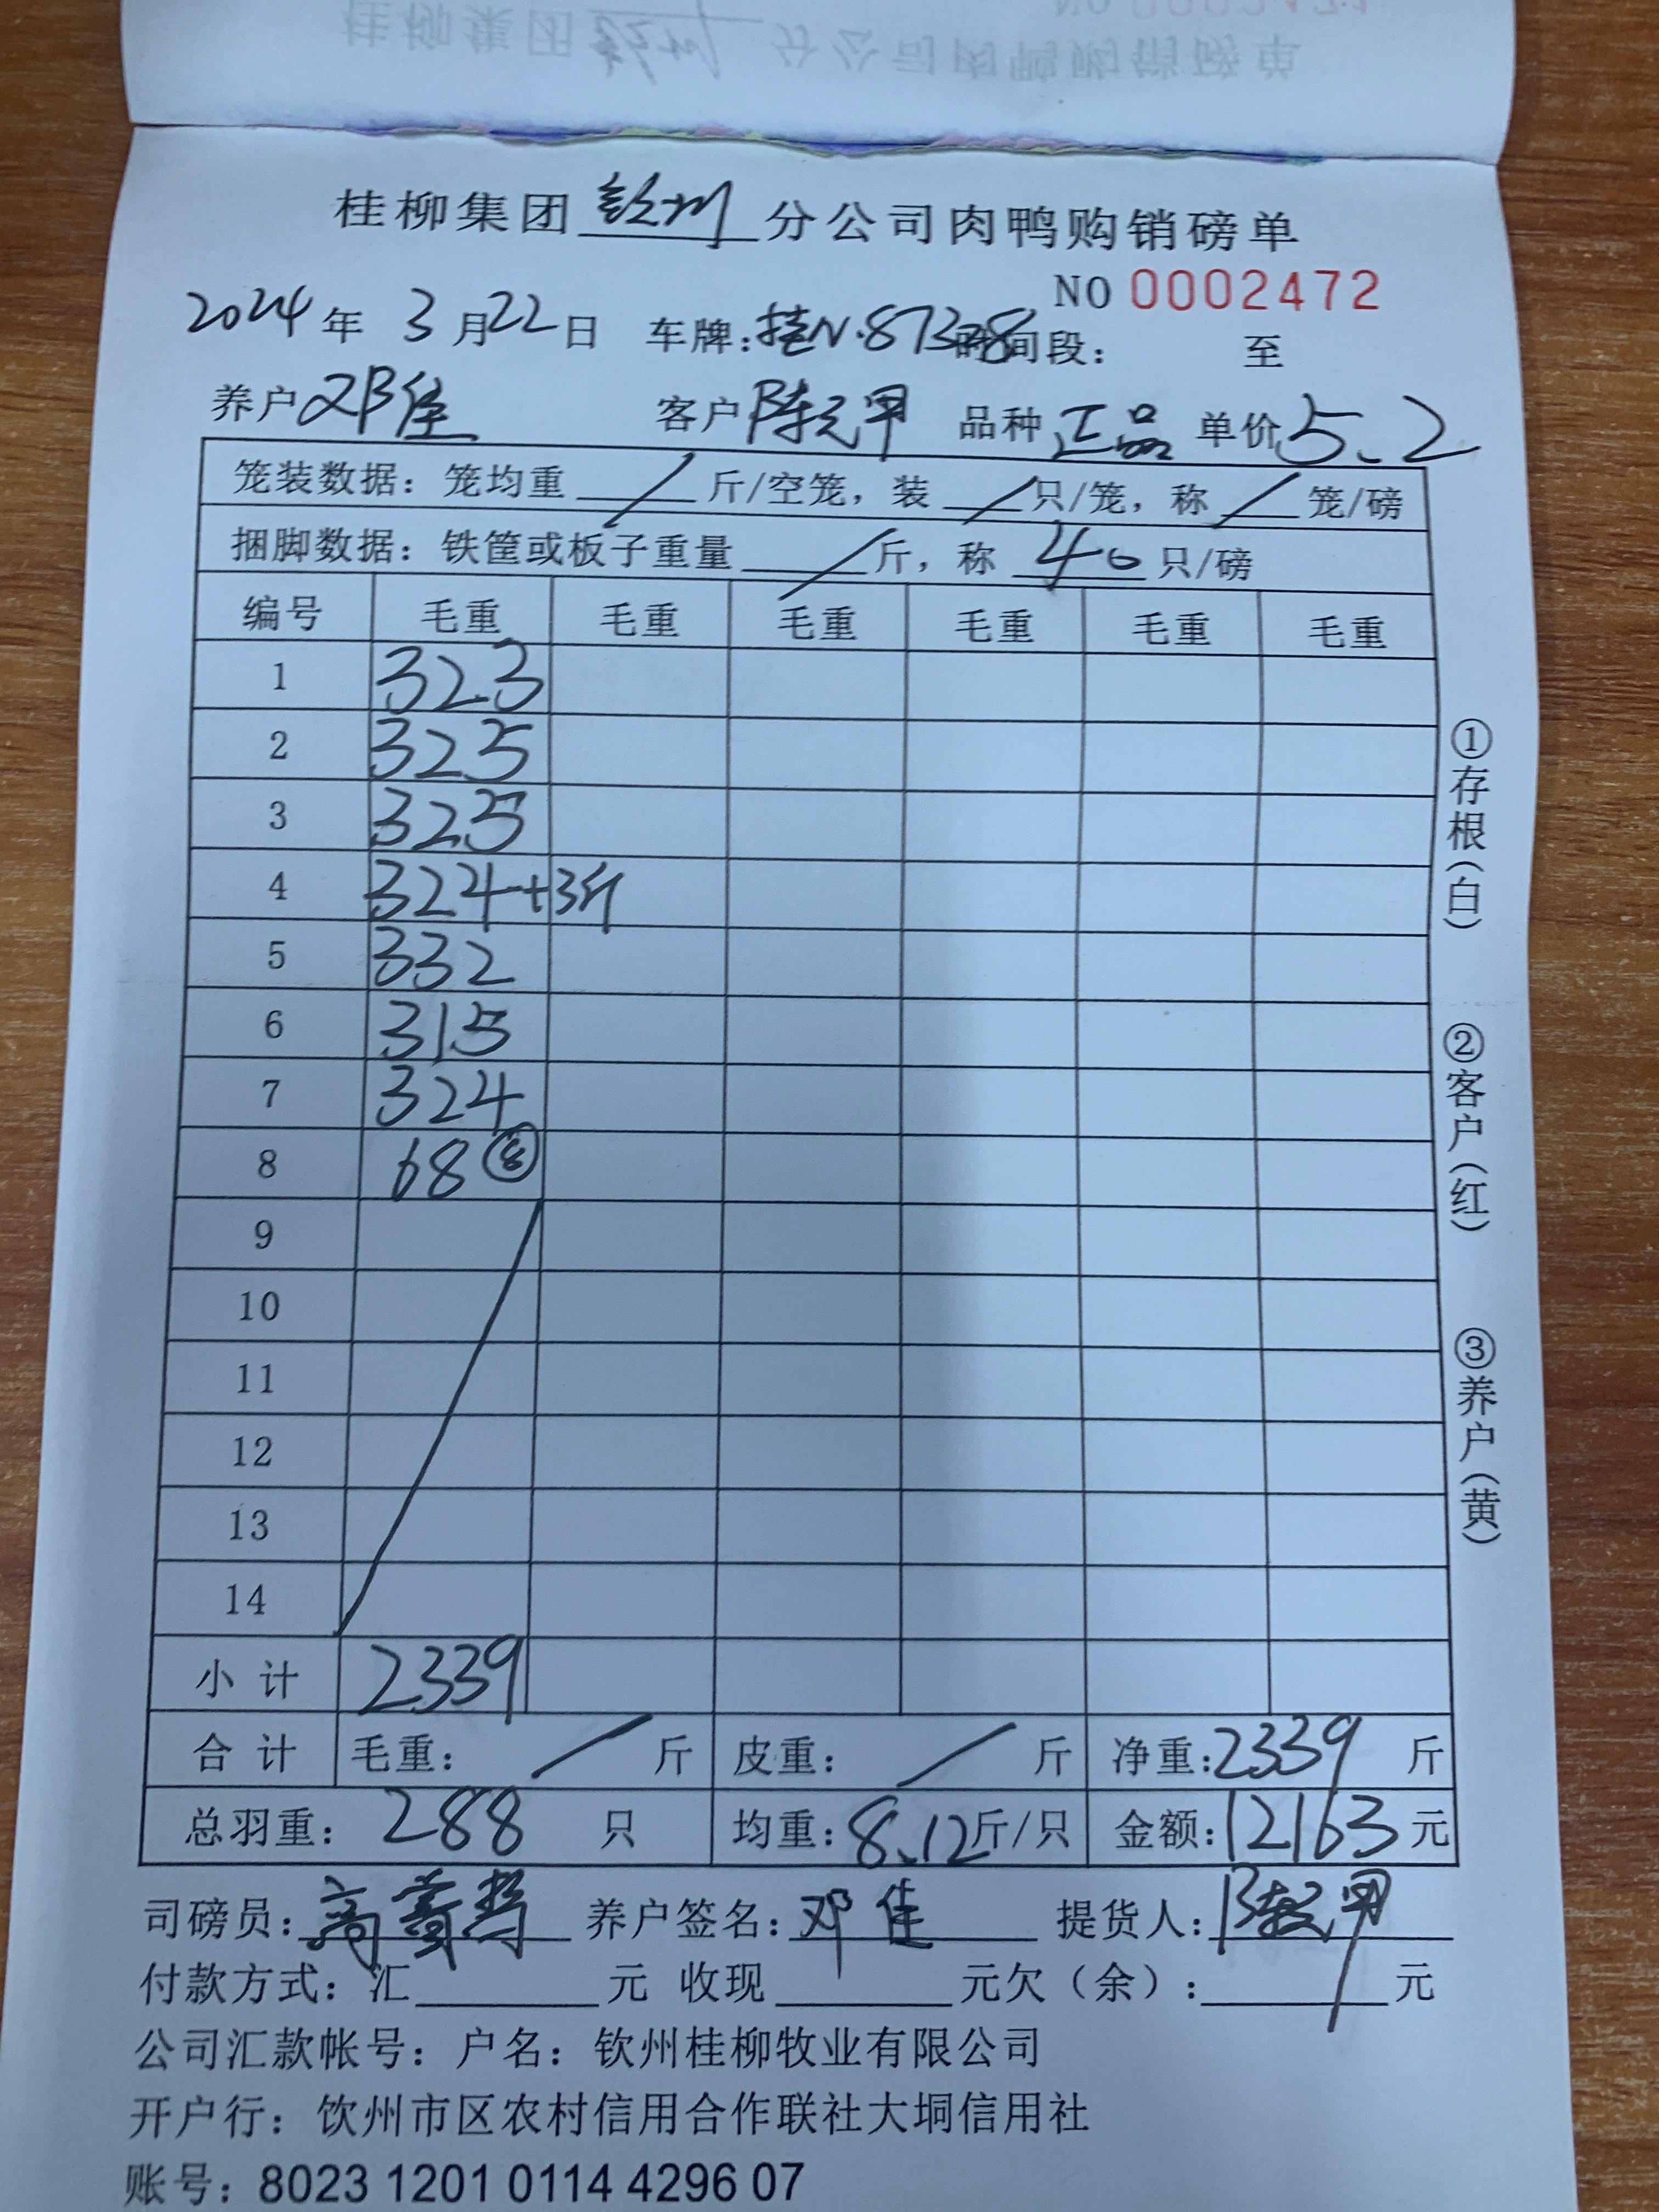 桂柳集团钦州分公司肉鸭购销磅单
NO 0002472
2024年 3月22日 车牌:桂N·87328 时间段: 至
养户 邓佳 客户 陈元甲 品种 正品 单价 5.2
笼装数据:笼均重 / 斤/空笼,装 / 只/笼,称 / 笼/磅
捆脚数据:铁筐或板子重量 / 斤,称 40 只/磅
编号 毛重 毛重 毛重 毛重 毛重 毛重
1 323
2 325
3 325
4 324+3斤
5 332
6 315
7 324
8 68 ⑧
9
10
11
12
13
14
小计 2339
合计 毛重: / 斤 皮重: / 斤 净重:2339 斤
总羽重: 288 只 均重:8.12斤/只 金额:12163元
司磅员:高 养户签名:邓佳 提货人:陈元甲
付款方式:汇 元 收现 元欠(余): 元
公司汇款帐号:户名:钦州桂柳牧业有限公司
开户行:钦州市区农村信用合作联社大垌信用社
账号:8023 1201 0114 4296 07
①存根(白)
②客户(红)
③养户(黄)